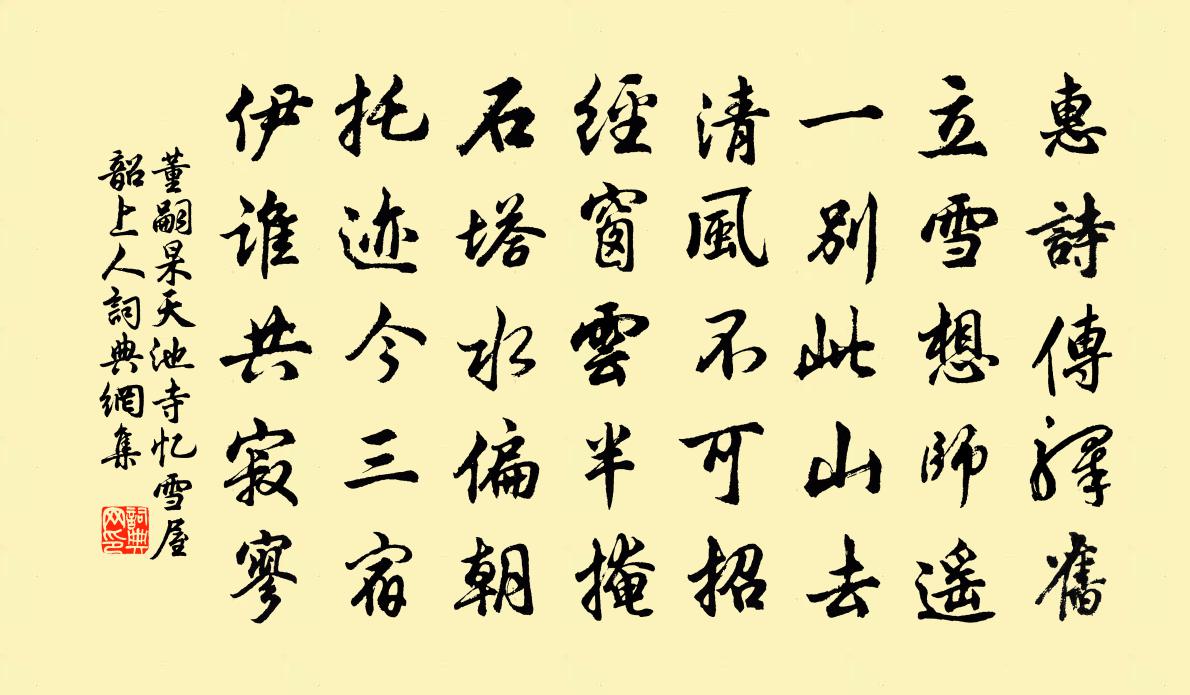 惠詩傳譯舊
立雪想師遥
一别此山去
清風不可招
經窗雲半掩
石塔水偏朝
托迹今三宿
伊誰共寂寥
董嗣杲天池寺忆雪屋
韶上人詞典網集
詞典网印